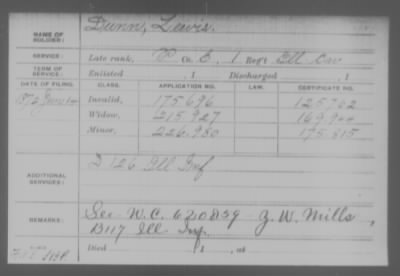 NAME OF SOLDIER: Dunn, Lewis.
SERVICE: Late rank, Co. E, 1 Reg't Ill Cav
TERM OF SERVICE: Enlisted , 1 Discharged , 1
DATE OF FILING. CLASS. APPLICATION NO. LAW. CERTIFICATE NO.
Invalid, 175696 125762
Widow, 215.927 169.944
Minor, 226.980 175.815
ADDITIONAL SERVICES: D 126 Ill Inf
REMARKS: See W.C. 620859 J. W. Mills,
B 117 Ill. Inf.
Died , 1 , at